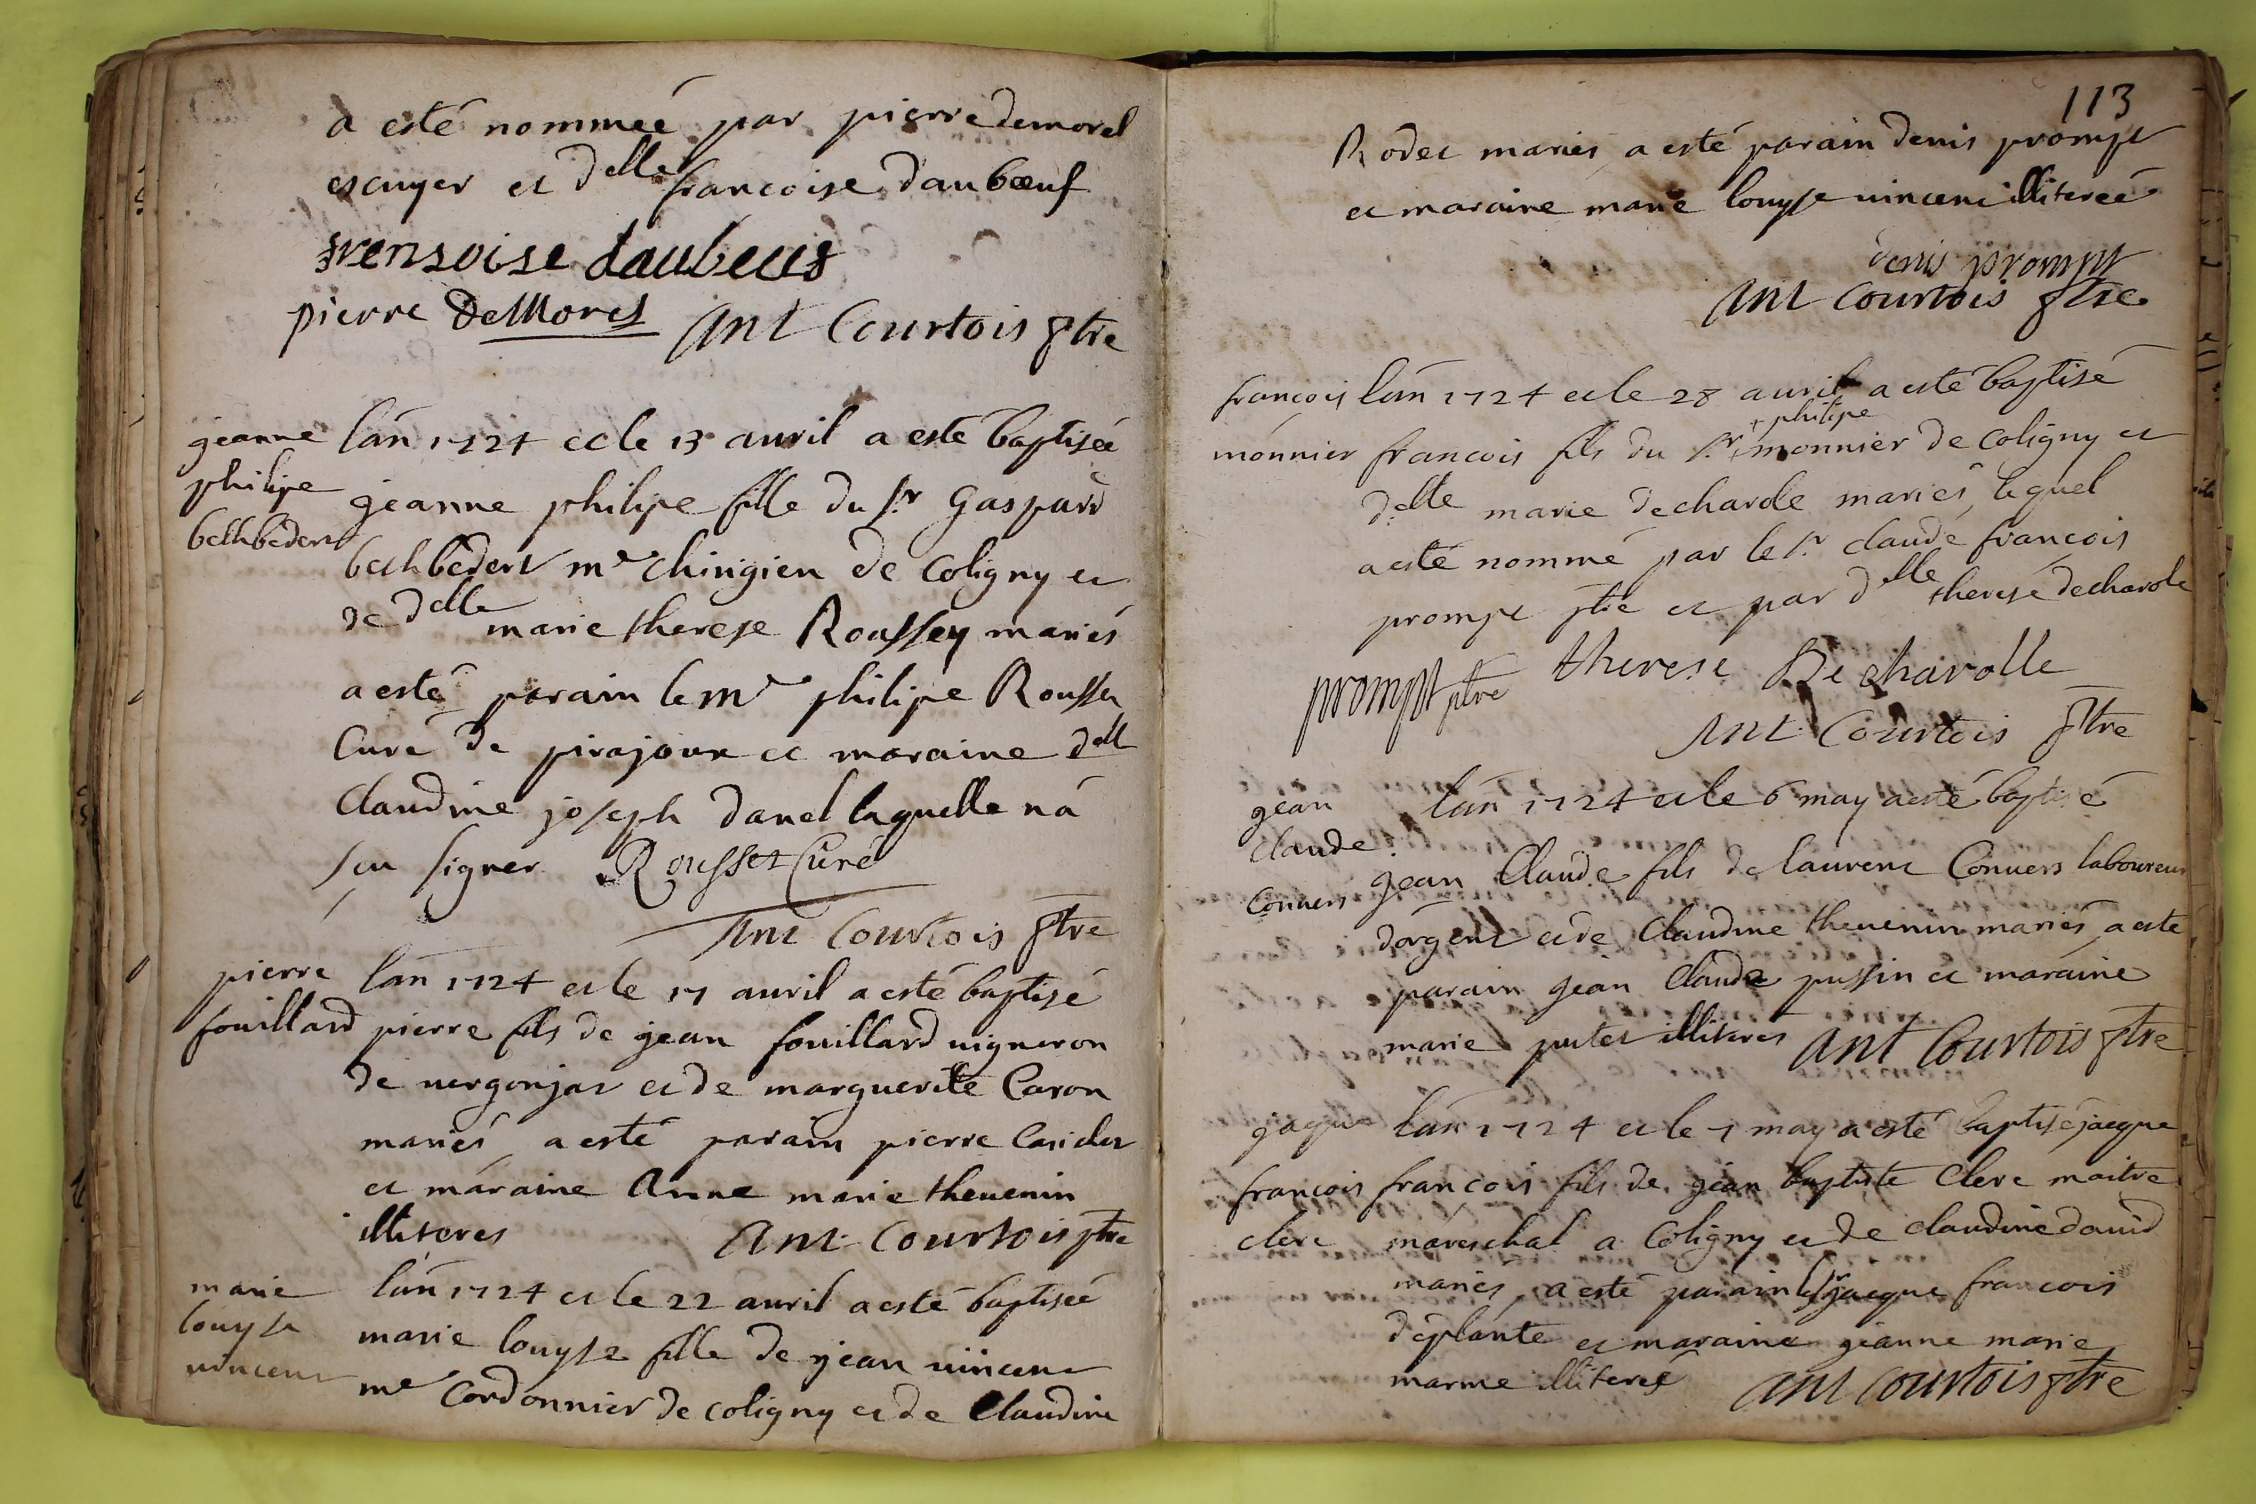 a esté nommeé par pierre demorel
escuyer et delle francoise daubœuf
frensoise daubeuf
pierre DeMorel Ant Courtois ptre
jeanne
philipe
bethbeder
lán 1724 et le 13 auril a esté baptiseé
jeanne philipe fille du sr Gaspard
bethbeder me chirigien de coligny et
de delle marie therese Roussey mariés
a esté parain le mr philipe Rousset
Curé de pirajoux et maraine dell
Claudine joseph danel laquelle ná
sçu signer Rousset Curé
Ant Courtois ptre
pierre
fouillard
lán 1724 et le 17 auril a esté baptisé
pierre fils de jean fouillard uigneron
de uergonjat et de marguerite Caron
mariés a esté parain pierre
et máraine Anne marie theuenin
illiteres Ant Courtois ptre
marie
louyse
uincent
lán 1724 et le 22 auril a esté baptiseé
marie louyse fille de jean uincent
me Cordonnier de coligny et de Claudine
113
Rodet mariés a esté parain denis prompt
et maraine marie louyse uincent illitereé
denis prompt
Ant Courtois ptre
francois
monnier
lán 1724 et le 28 auril a esté baptisé
+ philipe
francois fils du sr + monnier de coligny et
delle marie decharole mariés, lequel
a esté nommé par le sr claude françois
prompt ptre et par delle therese decharole
prompt ptre therese Decharolle
Ant Courtois ptre
jean
claude
Conuers
lán 1724 et le 6 may a esté baptisé
jean Claude fils de laurent Conuers laboureur
dórgent et de Claudine theuenin mariés a esté
parain jean Claude pussin et maraine
marie putet illiteres Ant Courtois ptre
jaque
francois
clerc
lán 1724 et le 7 may a esté baptisé jacque
francois fils de jean baptiste Clerc maitre
mareschal a Coligny et de claudine dauid
mariés, a esté parain le sr jacque francois
déplante et maraine jeanne marie
marme illitereé Ant Courtois ptre